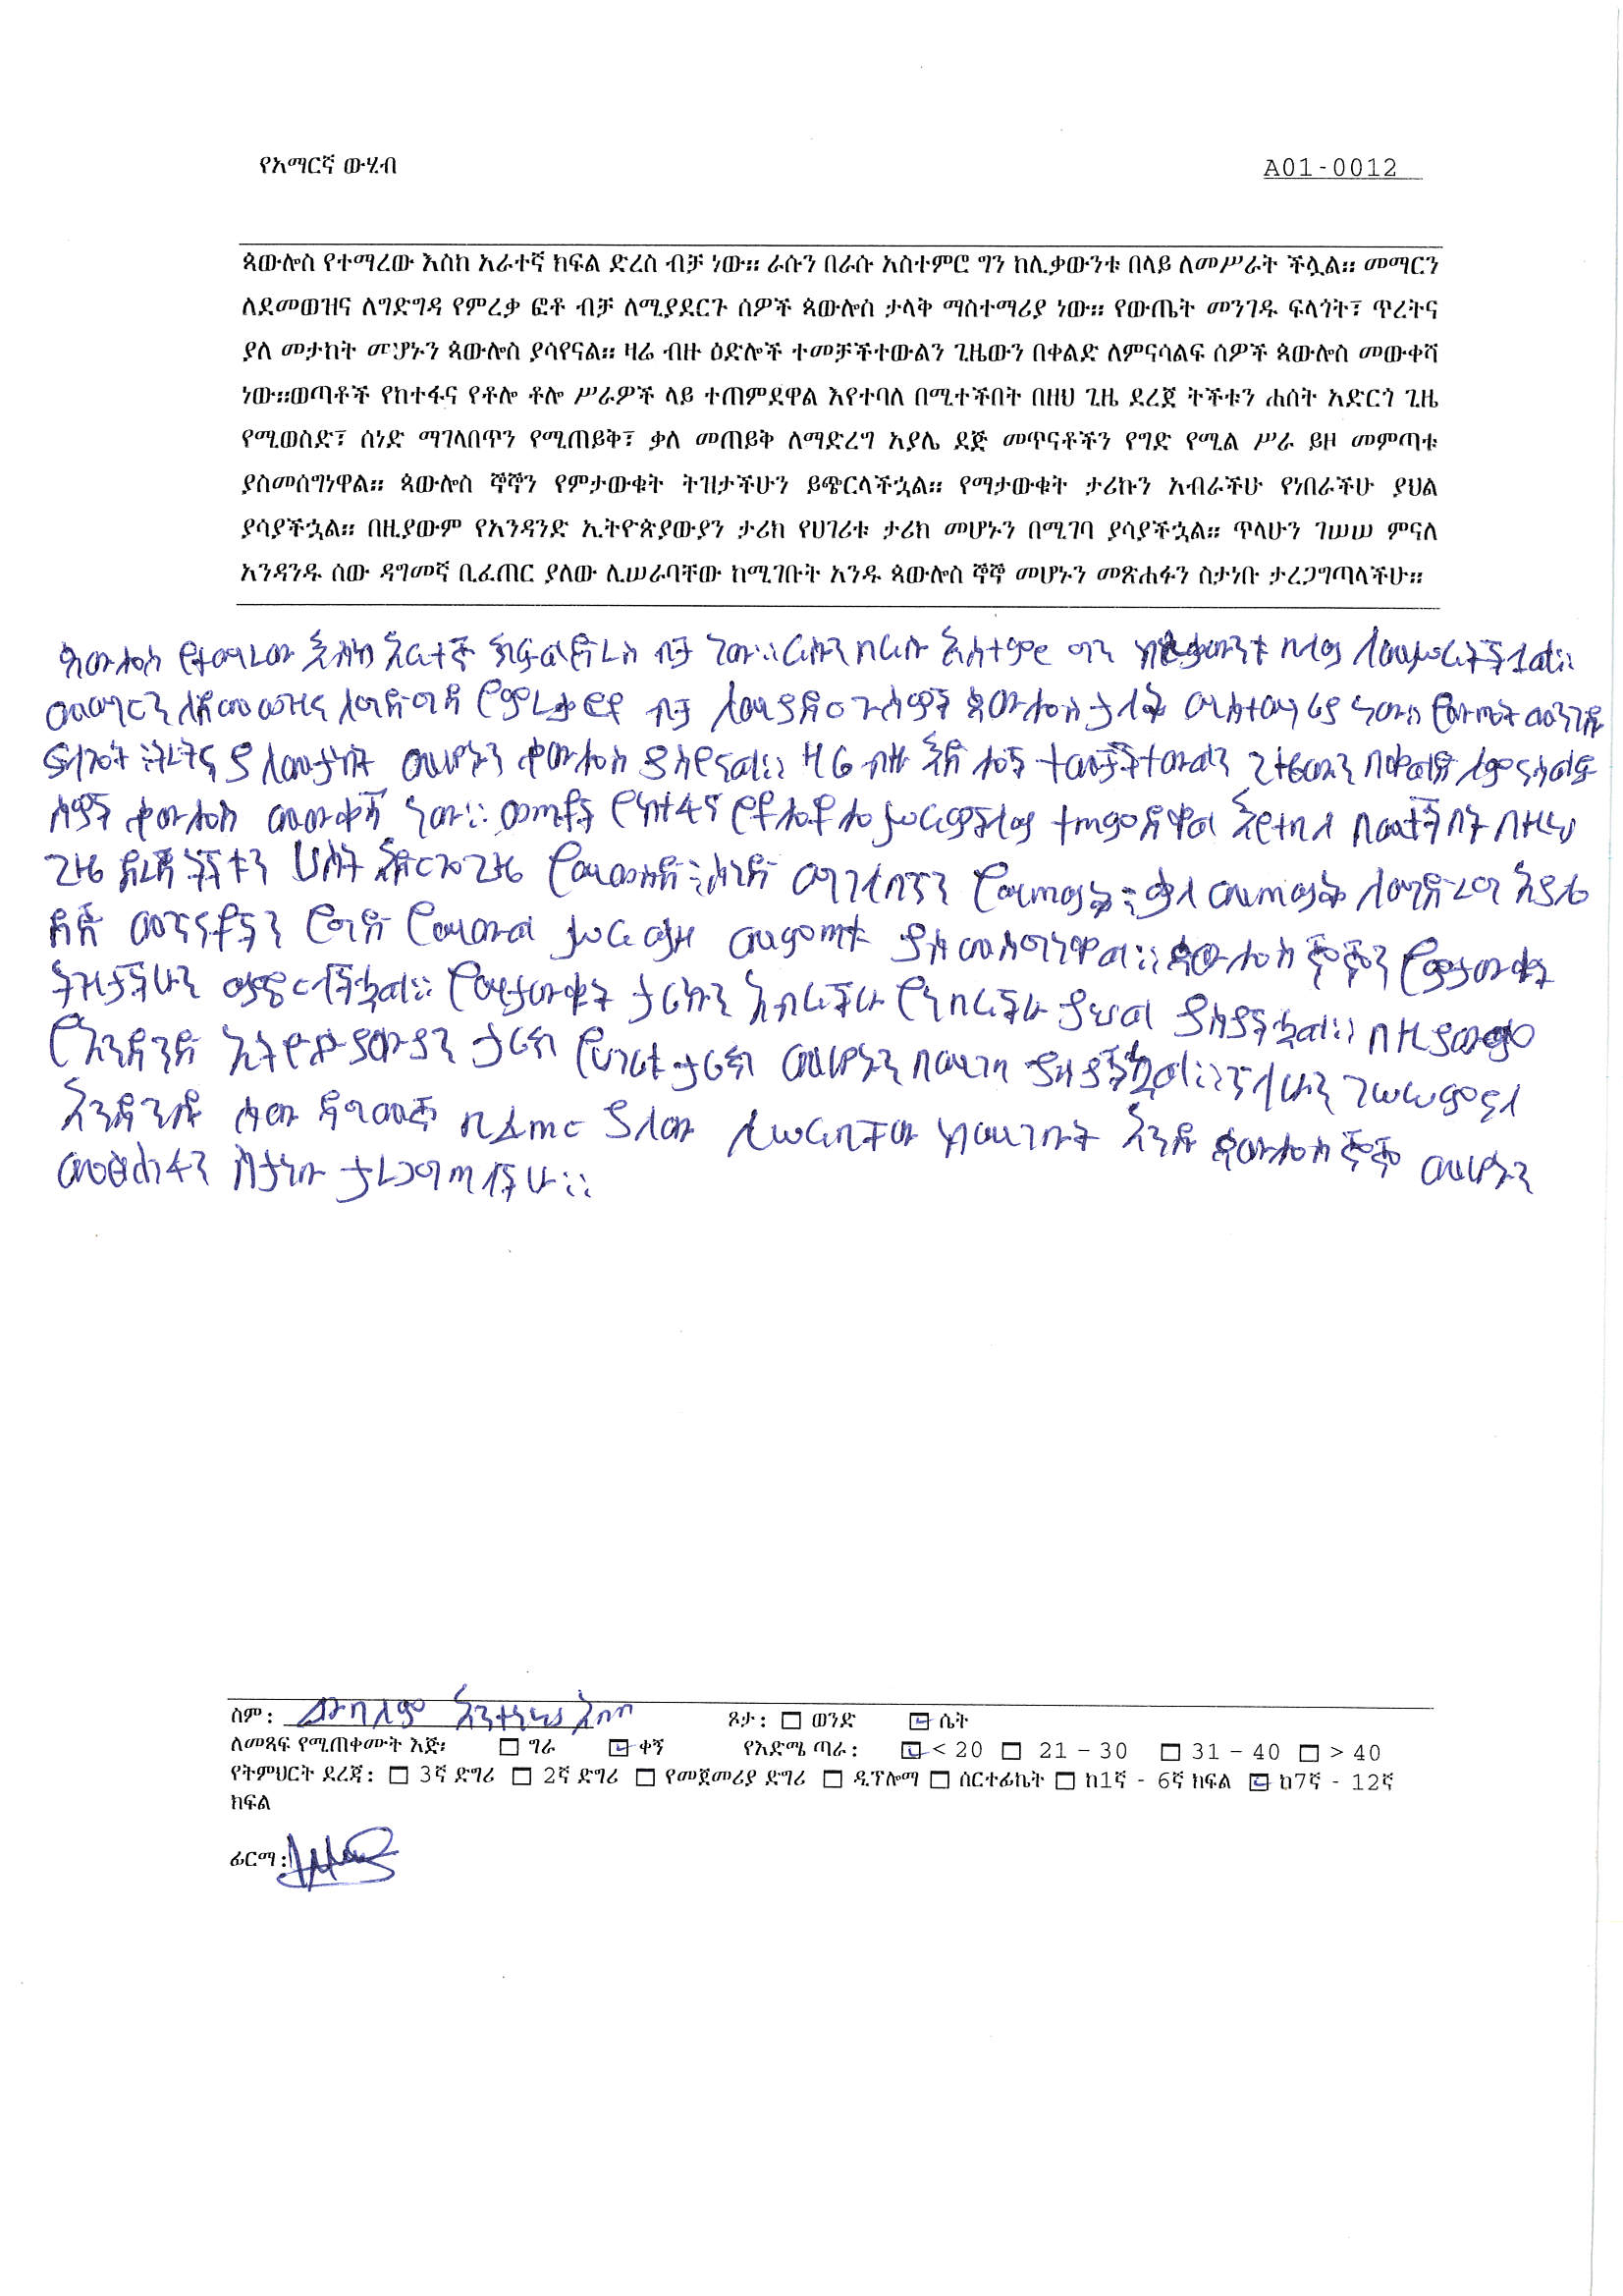 የአማርኛ ውሂብ
A01-0012
ጳውሎስ የተማረው እስከ አራተኛ ክፍል ድረስ ብቻ ነው። ራሱን በራሱ አስተምሮ ግን ከሊቃውንቱ በላይ ለመሥራት ችሏል። መማርን
ለደመወዝና ለግድግዳ የምረቃ ፎቶ ብቻ ለሚያደርጉ ሰዎች ጳውሎስ ታላቅ ማስተማሪያ ነው። የውጤት መንገዱ ፍላጎት፣ ጥረትና
ያለ መታከት መሆኑን ጳውሎስ ያሳየናል። ዛሬ ብዙ ዕድሎች ተመቻችተውልን ጊዜውን በቀልድ ለምናሳልፍ ሰዎች ጳውሎስ መውቀሻ
ነው።ወጣቶች የከተፋና የቶሎ ቶሎ ሥራዎች ላይ ተጠምደዋል እየተባለ በሚተችበት በዘህ ጊዜ ደረጀ ትችቱን ሐሰት አድርጎ ጊዜ
የሚወስድ፣ ሰነድ ማገላበጥን የሚጠይቅ፣ ቃለ መጠይቅ ለማድረግ አያሌ ደጅ መጥናቶችን የግድ የሚል ሥራ ይዞ መምጣቱ
ያስመሰግነዋል። ጳውሎስ ኞኞን የምታውቁት ትዝታችሁን ይጭርላችኋል። የማታውቁት ታሪኩን አብራችሁ የነበራችሁ ያህል
ያሳያችኋል። በዚያውም የአንዳንድ ኢትዮጵያውያን ታሪክ የሀገሪቱ ታሪክ መሆኑን በሚገባ ያሳያችኋል። ጥላሁን ገሠሠ ምናለ
አንዳንዱ ሰው ዳግመኛ ቢፈጠር ያለው ሊሠራባቸው ከሚገቡት አንዱ ጳውሎስ ኞኞ መሆኑን መጽሐፉን ስታነቡ ታረጋግጣላችሁ።
ጳውሎስ የተማረው እስከ አራተኛ ክፍል ድረስ ብቻ ነው። ራሱን በራሱ አስተምሮ ግን ከሊቃውንቱ በላይ ለመሥራት ችሏል።
መማርን ለደመወዝና ለግድግዳ የምረቃ ፎቶ ብቻ ለሚያደርጉ ሰዎች ጳውሎስ ታላቅ ማስተማሪያ ነው። የውጤት መንገዱ
ፍላጎት ፥ጥረትና ያለመታከት መሆኑን ጳውሎስ ያሳየናል። ዛሬ ብዙ እድሎች ተመቻችተውልን ጊዜውን በቀልድ ለምናሳልፍ
ሰዎች ጳውሎስ መውቀሻ ነው። ወጣቶች የከተፋና የቶሎ ቶሎ ሥራዎች ላይ ተጠምደዋል እየተባለ በሚተችበት በዚህ
ጊዜ ደረጀ ትችቱን ሀሰት አድርጎ ጊዜ የሚወስድ፥ ሰነድ ማገላበጥን የሚጠይቅ፥ ቃለ መጠይቅ ለማድረግ አያሌ
ደጅ መጥናቶችን የግድ የሚል ሥራ ይዞ መምጣቱ ያስመሰግነዋል። ጳውሎስ ኞኞን የምታውቁት
ትዝታችሁን ይጭርላችኋል። የማታውቁት ታሪኩን አብራችሁ የነበራችሁ ያህል ያሳያችኋል። በዚያውም
የአንዳንድ ኢትዮጵያውያን ታሪክ የሀገሪቱ ታሪክ መሆኑን በሚገባ ያሳያችኋል። ጥላሁን ገሠሠ ምናለ
አንዳንዱ ሰው ዳግመኛ ቢፈጠር ያለው ሊሠራባቸው ከሚገቡት አንዱ ጳውሎስ ኞኞ መሆኑን
መፅሐፉን ስታነቡ ታረጋግጣላችሁ።
ስም: ውባለም ጾታ: ወንድ ሴት
ለመጻፍ የሚጠቀሙት እጅ፡ ግራ ቀኝ የእድሜ ጣራ: < 20 21 – 30 31 – 40 > 40
የትምህርት ደረጃ: 3ኛ ድግሪ 2ኛ ድግሪ የመጀመሪያ ድግሪ ዲፕሎማ ሰርተፊኬት ከ1ኛ - 6ኛ ክፍል ከ7ኛ - 12ኛ
ክፍል
ፊርማ: